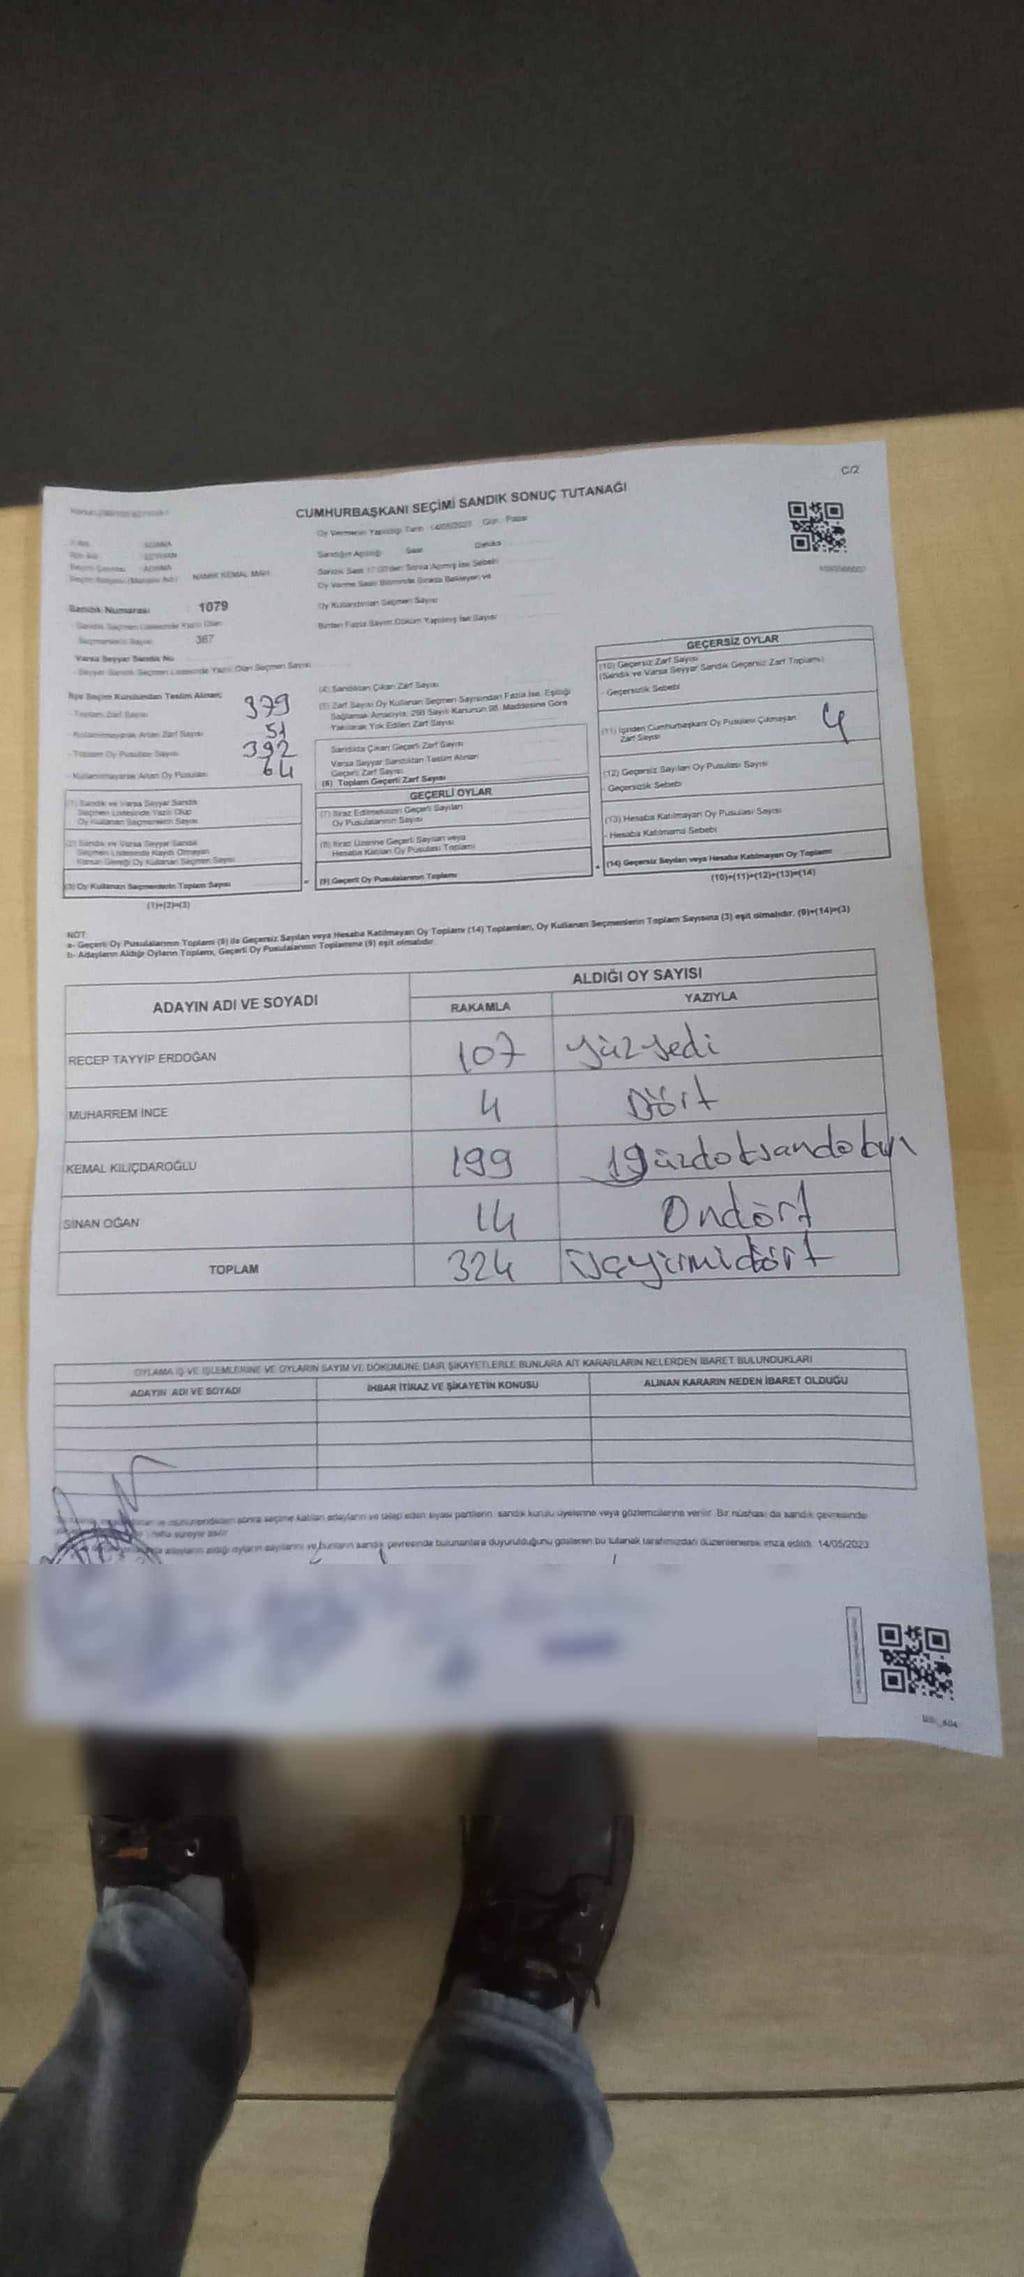 C/2
CUMHURBAŞKANI SEÇİMİ SANDIK SONUÇ TUTANAĞI
Oy Vermenin Yapıldığı Tarih : 14/05/2023 Gün : Pazar
Sandığın Açıldığı Saat Dakika
Sandık Saat 17:00'den Sonra Açılmış İse Sebebi
Oy Verme Saati Bitiminde Sırada Bekleyen ve
Oy Kullandırılan Seçmen Sayısı
Birden Fazla Sayım Döküm Yapılmış İse Sayısı
ADANA
SEYHAN
ADANA
NAMIK KEMAL MAH.
Sandık Numarası 1079
Sandık Seçmen Listesinde Yazılı Olan
Seçmenlerin Sayısı 367
Varsa Seyyar Sandık No
Seyyar Sandık Seçmen Listesinde Yazılı Olan Seçmen Sayısı
İlçe Seçim Kurulundan Teslim Alınan;
- Toplam Zarf Sayısı 379
- Kullanılmayarak Artan Zarf Sayısı 51
- Toplam Oy Pusulası Sayısı 392
- Kullanılmayarak Artan Oy Pusulası 64
(1) Sandık ve Varsa Seyyar Sandık
Seçmen Listesinde Yazılı Olup
Oy Kullanan Seçmenlerin Sayısı
(2) Sandık ve Varsa Seyyar Sandık
Seçmen Listesinde Kaydı Olmayan
Kanun Gereği Oy Kullanan Seçmen Sayısı
(3) Oy Kullanan Seçmenlerin Toplam Sayısı
(1)+(2)=(3)
(4) Sandıktan Çıkan Zarf Sayısı
(5) Zarf Sayısı Oy Kullanan Seçmen Sayısından Fazla İse, Eşitliği
Sağlamak Amacıyla, 298 Sayılı Kanunun 98. Maddesine Göre
Yakılarak Yok Edilen Zarf Sayısı
Sandıkta Çıkan Geçerli Zarf Sayısı
Varsa Seyyar Sandıktan Teslim Alınan
Geçerli Zarf Sayısı
(6) Toplam Geçerli Zarf Sayısı
GEÇERLİ OYLAR
(7) İtiraz Edilmeksizin Geçerli Sayılan
Oy Pusulalarının Sayısı
(8) İtiraz Üzerine Geçerli Sayılan veya
Hesaba Katılan Oy Pusulası Toplamı
(9) Geçerli Oy Pusulalarının Toplamı
GEÇERSİZ OYLAR
(10) Geçersiz Zarf Sayısı
(Sandık ve Varsa Seyyar Sandık Geçersiz Zarf Toplamı)
- Geçersizlik Sebebi
(11) İçinden Cumhurbaşkanı Oy Pusulası Çıkmayan
Zarf Sayısı 4
(12) Geçersiz Sayılan Oy Pusulası Sayısı
- Geçersizlik Sebebi
(13) Hesaba Katılmayan Oy Pusulası Sayısı
- Hesaba Katılmama Sebebi
(14) Geçersiz Sayılan veya Hesaba Katılmayan Oy Toplamı
(10)+(11)+(12)+(13)=(14)
NOT:
a- Geçerli Oy Pusulalarının Toplamı (9) ile Geçersiz Sayılan veya Hesaba Katılmayan Oy Toplamı (14) Toplamları, Oy Kullanan Seçmenlerin Toplam Sayısına (3) eşit olmalıdır. (9)+(14)=(3)
b- Adayların Aldığı Oyların Toplamı, Geçerli Oy Pusulalarının Toplamına (9) eşit olmalıdır.
ADAYIN ADI VE SOYADI ALDIĞI OY SAYISI
RAKAMLA YAZIYLA
RECEP TAYYİP ERDOĞAN 107 yüzyedi
MUHARREM İNCE 4 Dört
KEMAL KILIÇDAROĞLU 199 19üzdoksandokuz
SİNAN OĞAN 14 Ondört
TOPLAM 324 üçyirmidört
OYLAMA İŞ VE İŞLEMLERİNE VE OYLARIN SAYIM VE DÖKÜMÜNE DAİR ŞİKAYETLERLE BUNLARA AİT KARARLARIN NELERDEN İBARET BULUNDUKLARI
ADAYIN ADI VE SOYADI İHBAR İTİRAZ VE ŞİKAYETİN KONUSU ALINAN KARARIN NEDEN İBARET OLDUĞU
sonra seçime katılan adayların ve talep eden siyasi partilerin sandık kurulu üyelerine veya gözlemcilerine verilir. Bir nüshası da sandık çevresinde
hafta süreyle asılır.
adayların aldığı oyların sayılarını ve bunların sandık çevresinde bulunanlara duyurulduğunu gösteren bu tutanak tarafımızdan düzenlenerek imza edildi. 14/05/2023